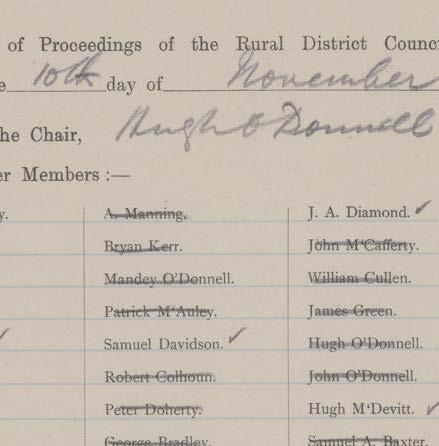 of Proceedings of the Rural District Counc
e 10th day of November
he Chair, Hugh O'Donnell
er Members :—
y. A. Manning. J. A. Diamond. ✓
Bryan Kerr. John M'Cafferty.
Mandey O'Donnell. William Cullen.
Patrick M'Auley. James Green.
✓ Samuel Davidson. ✓ Hugh O'Donnell.
Robert Colhoun. John O'Donnell.
Peter Doherty. Hugh M'Devitt. ✓
George Bradley. Samuel A. Baxter.